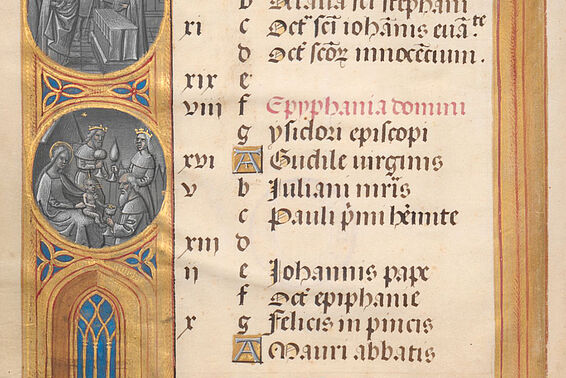 b Octa sci stephani
xi c Oct̄ sc̄i iohānis euā.te
d Oct̄ scōꝝ innocētium .
xix e
viii f Epyphania domini
g ysidori episcopi
xvi A Gudile uirginis
v b Juliani mr̄is
c Pauli p̄mi hēmite
xiii d
ii e Johannis pape
f Oct̄ epiphanie
x g felicis in pincis
A Mauri abbatis